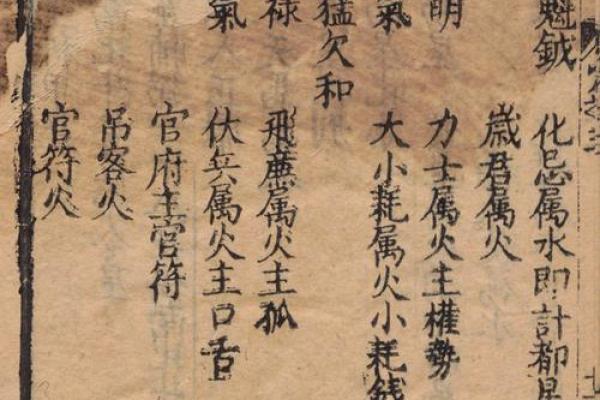 魁鉞 化忌属水即計都星
歲君属火
明 力士属火主權勢
氣 大小耗属火小耗錢
猛欠和
禄 飛廉属火主孤
氣 伏兵属火主口舌
官府主官符
吊客火
官符火